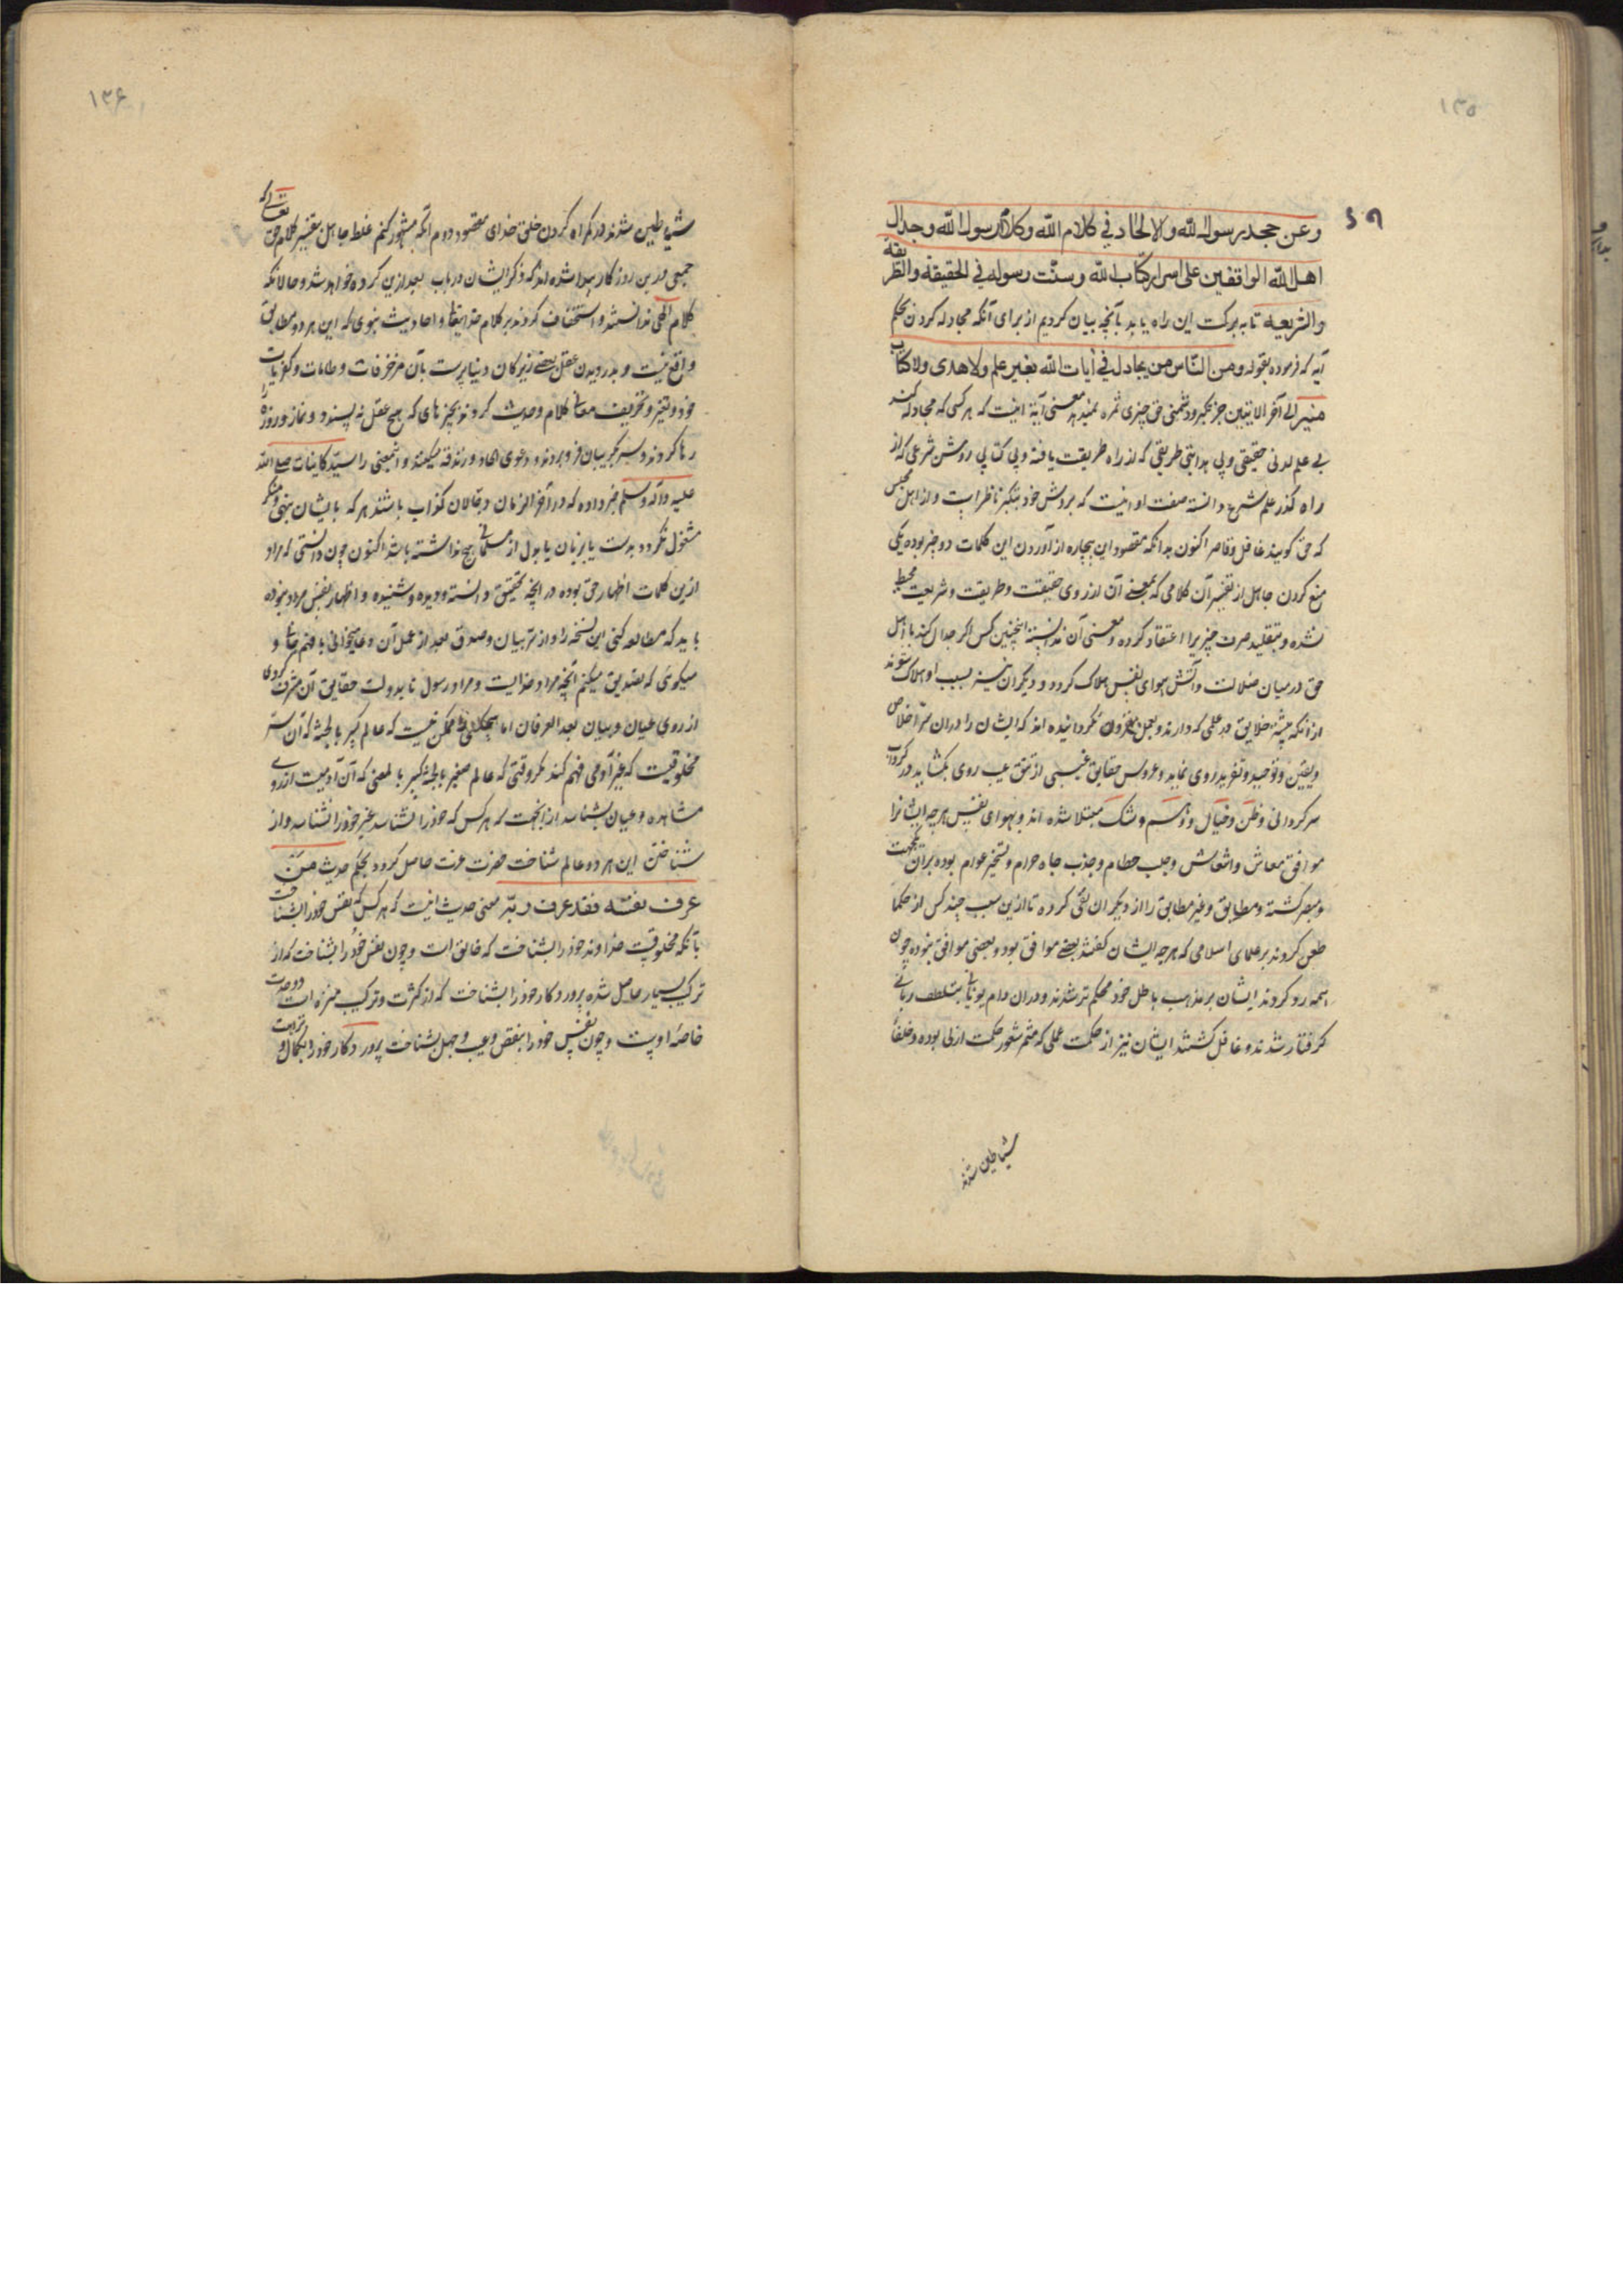 ۱۳۵
۵۹
وعن جحد رسول الله والالحاد في كلام الله وكلام رسول الله وجدال
اهل الله الواقفين على اسرار كتاب الله وسنت رسوله في الحقيقة والطريقة
والشريعه تا به بركت اين راه يابد بآنچه بيان كرديم از براى آنكه مجادله كردن بحكم
آيه كه فرموده بقوله ومن الناس من يجادل في آيات الله بغير علم ولا هدى ولا كتاب
منير الى آخر الايتين جز تكبر ودشمنى حق چيزى ثمره نميدهد معنى آية اينست كه هر كسى كه مجادله كند
بى علم لدنى حقيقى وبى هدايتى طريقى كه از راه طريقت يافته وبى كتابى روشن شرعى كه از
راه گذر علم شرع دانسته صفت او اينست كه بر دوش خود بتكبر ناظر است و از اهل مجلس
كه حق گويند غافل وقاصر اكنون بدانكه مقصود اين بيچاره از آوردن اين كلمات دو چيز بوده يكى
منع كردن جاهل از تفسير آن كلامى كه بمعنى آن از روى حقيقت وطريقت وشريعت محيط
نشده وبتقليد صرف چيزيرا اعتقاد كرده ومعنى آن ندانسته اينچنين كس اگر جدال كند با اهل
حق در ميان ضلالت وآتش هواى نفس هلاك گردد و ديگران نيز بسبب او هلاك شوند
از آنكه بيشتر خلايق در علمى كه دارند وبعمل مقرون نگردانيده اند كه ايشان را در آن سر اخلاص
ويقين وتوحيد وتفريد روى نمايد وعروس حقايق غيبى از تتق غيب روى بگشايد در گرداب
سرگردانى وظن وخيال ووهم وشك مبتلا شده اند وبهواى نفس هر چه ايشانرا
موافق معاش وانتعاش وجلب حطام وجذب جاه حرام وتسخير عوام بوده بر آن بجهت
ومصر گشته ومطابق وغير مطابق را از ديگران نفى كرده تا ازين سبب چند كس از حكما
طعن كردند بر علماى اسلامى كه هر چه ايشان گفتند بعضى موافق بود وبعضى موافق نبوده چون
همه رد كردند ايشان بر مذهب باطل خود محكم تر شدند ودر آن دام يونانى بتلطف ربانى
گرفتار شدند وغافل گشتند ايشان نيز از حكمت عملى كه مثمر شعور حكمت ازلى بوده وخلفاء
شياطين شدند
۱۳۶
شياطين شدند در گمراه كردن خلق خداى مقصود دوم آنكه مشهور كنم غلط جاهل بتفسير كلام حق تعالى كه
جمعى در ين روزگار پيدا شده اند كه ذكر ايشان در باب بعد ازين كرده خواهد شد و حالانكه
كلام الهى ندانستند و استخفاف كردند بر كلام خدايتعالى و احاديث نبوى كه اين هر دو مطابق
واقع نيست و بدزديدن عقل بعضى زيركان دنيا پرست بآن مزخرفات و طامات وكفريات
خود وتغير وتحريف معانى كلام وحديث كردند بچيزهاى كه هيچ عقل نه پسندد و نماز وروزه را
رها كردند وسر بگريبان فرو بردند و دعوى الحاد و زندقه ميكنند و اين معنى را سيد كاينات صلى الله
عليه وآله وسلم خبر داده كه در آخر الزمان دجالان كذاب باشند هر كه با ايشان بنهى منكر
مشغول نگردد بدست يا بزبان يا بدل از مسلمانى هيچ نداشته باشد اكنون چون دانستى كه مراد
ازين كلمات اظهار حق بوده در آنچه بتحقيق دانسته وديده وشنيده و اظهار نفس مراد نبوده
بايد كه مطالعه كنى اين نسخه را و از سر بيان وصدق بعد از عمل آن وعا ميخوانى با فهم صافى و
ميگوئى كه تصديق ميكنم آنچه مراد خدايست و مراد رسول تا بدولت حقايق آن مشرف گردى
از روى عيان وبيان بعد العرفان اما بهيچكس ممكن نيست كه عالم كبير بالجثه كه آن سر
مخلوقيت كه غير آدمى فهم كند مگر وقتى كه عالم صغير بالجثه كبير بالمعنى كه آن آدميت از روى
مشاهده وعيان بشناسد از آنجهت كه هر كس كه خود را نشناسد غير خود را نشناسد و از
شناختن اين هر دو عالم شناخت حضرت عزت حاصل گردد بحكم حديث من
عرف نفسه فقد عرف ربه معنى حديث اينست كه هر كس كه نفس خود را بشناخت
بآنكه مخلوقيت خداوند خود را بشناخت كه خالق است و چون نفس خود را بشناخت كه از
تركيب بسيار حاصل شده پروردگار خود را بشناخت كه از كثرت وتركيب منزه است و وحدت
خاصهٔ اوست و چون نفس خود را بنقص وعيب وجهل بشناخت پروردگار خود را بكمال و نزاهت